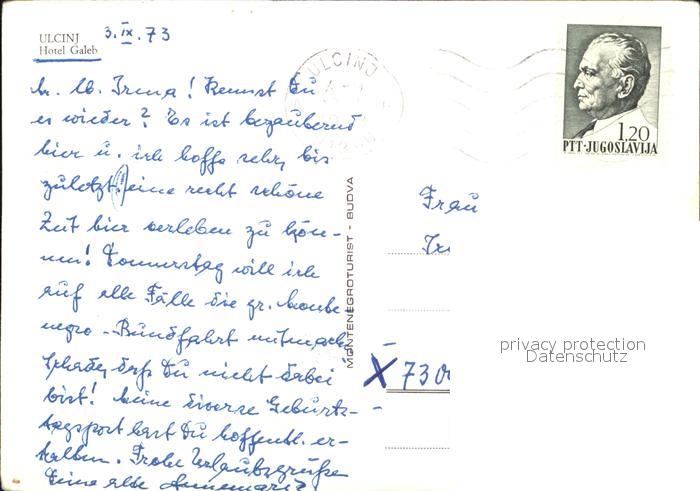 ULCINJ
Hotel Galeb
3. IX. 73
M. lb. Irma! Kennst Du
es wieder? Es ist bezaubernd
hier u. ich hoffe sehr, bis
zuletzt eine recht schöne
Zeit hier verleben zu kön-
nen! Donnerstag will ich
auf alle Fälle die gr. Monte
negro-Rundfahrt mitmach.
Schade, daß Du nicht dabei
bist! Meine diverse Geburts-
tagspost hast Du hoffentl. er-
halten. Frohe Urlaubsgrüße
Deine alte Annemarie
MONTENEGROTURIST - BUDVA
ULCINJ
1.20
PTT·JUGOSLAVIJA
Frau
X 730
privacy protection
Datenschutz